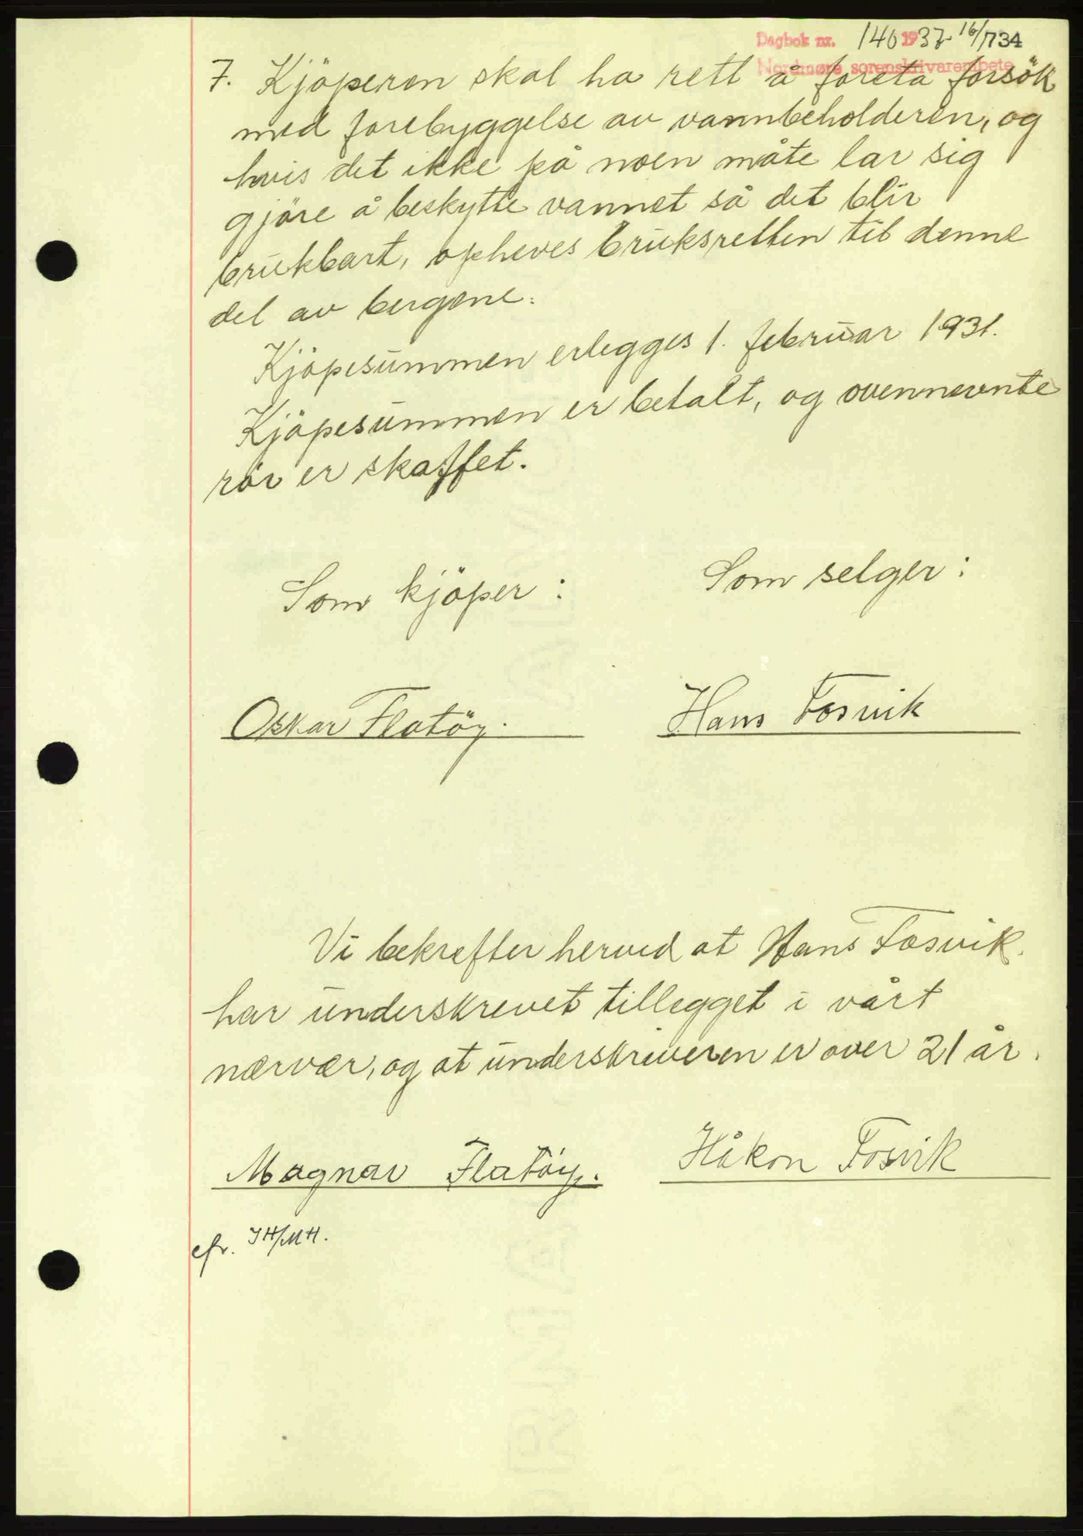 Dagbok nr. 140 1937 16/1 734
Nordmøre sorenskriverembete
7. Kjöperen skal ha rett å foreta forsök
med forebyggelse av vannbeholderen, og
hvis det ikke på noen måte lar sig
gjöre å beskytte vannet så det blir
brukbart, opheves bruksretten til denne
del av bergene.
Kjöpesummen erlegges 1. februar 1931.
Kjöpesummen er betalt, og ovennevnte
rör er skaffet.
Som kjöper : Som selger :
Oskar Flatöy. Hans Fosvik
Vi bekrefter herved at Hans Fosvik.
har underskrevet tillegget i vårt
nærvær, og at underskriveren er over 21 år.
Magnar Flatöy. Håkon Fosvik
cfr. JH/MH.